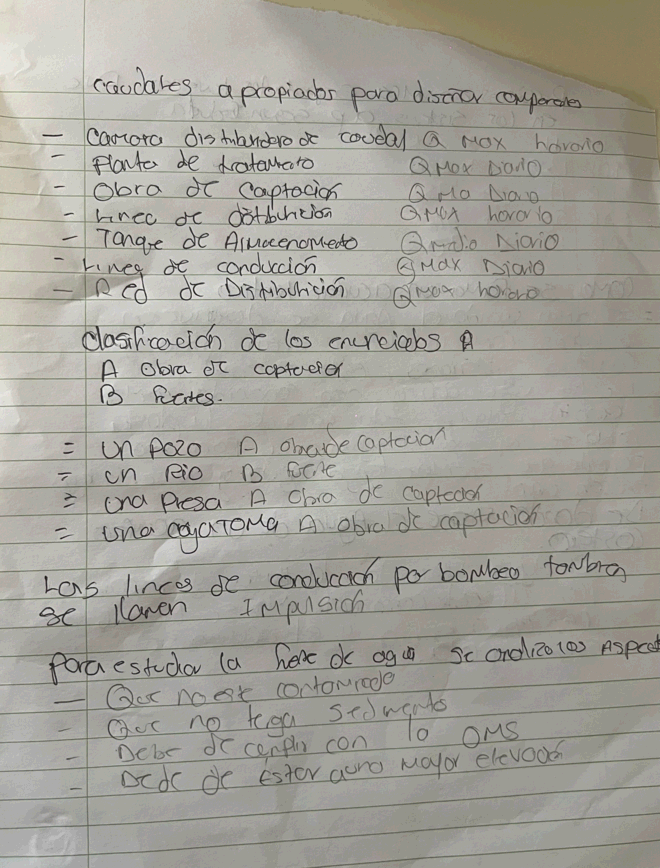 caudales apropiados para diseñar componetes
— Camara distribuidora de caudal Q Max horario
- Planta de tratamieto Q Max Diario
- Obra de Captacion Q Ma Diario
- Linea de distribucion Q Max horario
- Tanque de Almacenamiedo Q medio Diario
- Linea de conducción Q Max Diario
- Red de Distribución Q Max horario
Clasificacion de los enunciados A
A Obra de captacion
B fuentes.
= Un pozo A obra de captacion
= un Rio B fuente
= una Presa A Obra de Captacion
= una BocaTOMA A Obra de captacion
Las lineas de conducción por bombeo tambien
se llaman Impulsion
Para estudiar la fuente de agua se analiza los Aspect
— Que no este contaminado
- Que no tega Sedimento
- Debe de cumplir con lo OMS
- Debe de estar a una mayor elevacion